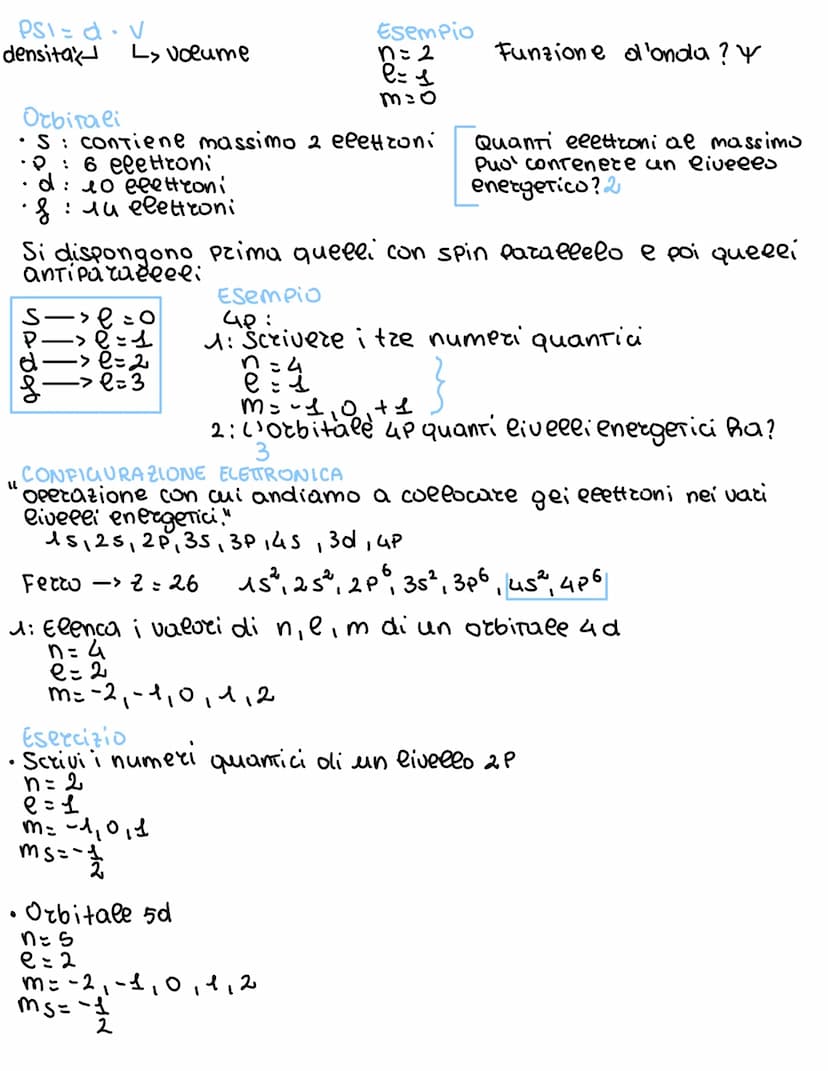 PSI = d · V
densità ↲ ↳ volume
Esempio
n = 2
l = 1
m = 0
Funzione d'onda? Ψ
Orbitali
· S : contiene massimo 2 elettroni
· P : 6 elettroni
· d : 10 elettroni
· f : 14 elettroni
Quanti elettroni al massimo
può contenere un livello
energetico? 2
Si dispongono prima quelli con spin parallelo e poi quelli
antiparalleli
S —> l = 0
P —> l = 1
d —> l = 2
f —> l = 3
Esempio
4p :
1: Scrivere i tre numeri quantici
n = 4
l = 1
m = -1, 0, +1
2: L'orbitale 4p quanti livelli energetici ha?
3
CONFIGURAZIONE ELETTRONICA
"operazione con cui andiamo a collocare gli elettroni nei vari
livelli energetici."
1s, 2s, 2p, 3s, 3p, 4s, 3d, 4p
Ferro —> Z = 26 1s², 2s², 2p⁶, 3s², 3p⁶, 4s², 4p⁶
1: Elenca i valori di n, l, m di un orbitale 4d
n = 4
l = 2
m = -2, -1, 0, 1, 2
Esercizio
· Scrivi i numeri quantici di un livello 2p
n = 2
l = 1
m = -1, 0, 1
ms = -1/2
· Orbitale 5d
n = 5
l = 2
m = -2, -1, 0, 1, 2
ms = -1/2